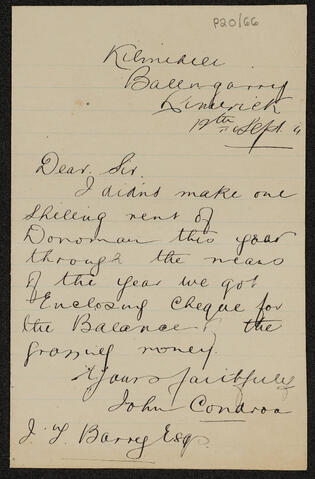 P20/66
Kilmihil
Ballingarry
Limerick
12th Sept.
Dear Sir.
I didnt make one
shilling rent of
Donoman this year
through the
of the year we got
Enclosing cheque for
the Balance of the
grassing money.
Yours faithfully
John Condron
J. T. Barry Esq.